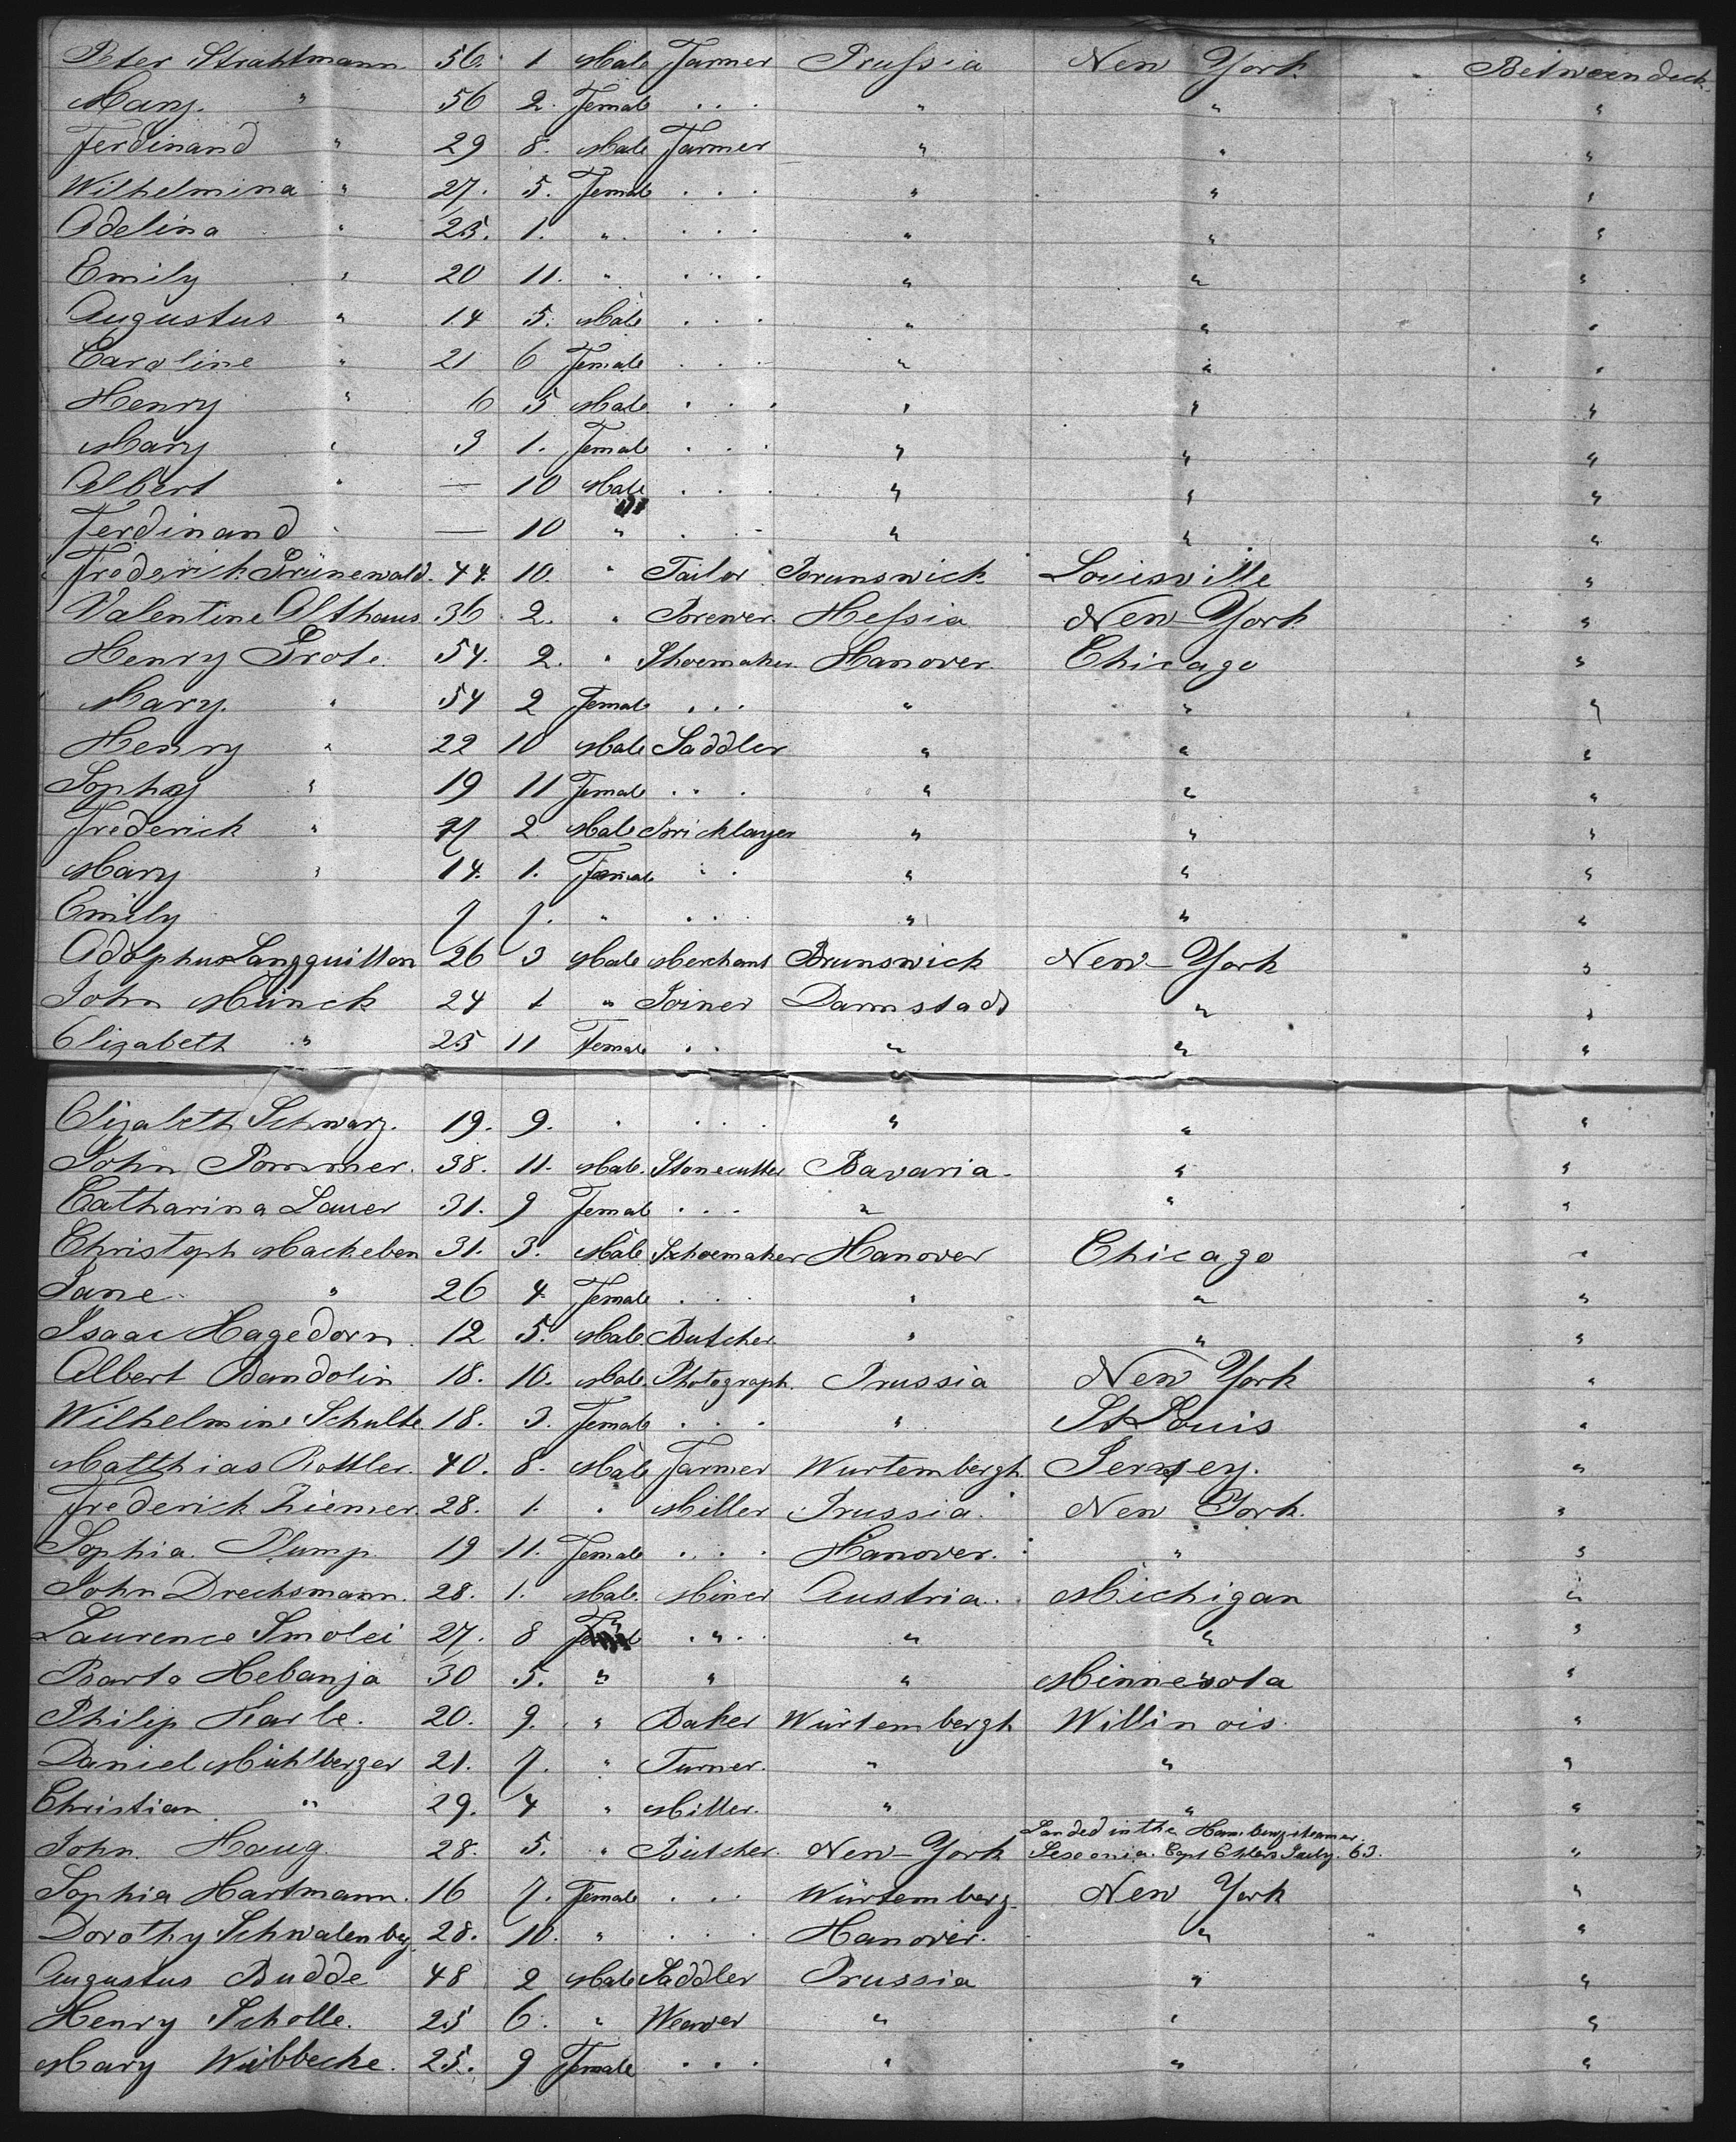 Peter Strahtmann 56. 1 Male Farmer Prussia New York Between deck
Mary. " 56 2. Female . . . " " "
Ferdinand " 29 8. Male Farmer " " "
Wilhelmina " 27. 5. Female . . . " " "
Adelina " 25. 1. " . . . " " "
Emily " 20 11. " . . . " " "
Augustus " 14 5. Male . . . " " "
Caroline " 21 6 Female . . . " " "
Henry " 6 5 Male . . . " " "
Mary " 3 1. Female . . . " " "
Albert " — 10 Male . . . " " "
Ferdinand " — 10 " . . . " " "
Frederich Grünewald. 44. 10. " Tailor Brunswick Louisville "
Valentine Althaus 36 2. " Brewer. Hessia New York "
Henry Grote. 54. 2. " Shoemaker Hanover. Chicago "
Mary. " 54 2 Female . . . " " "
Henry " 22 10 Male Saddler " " "
Sophay " 19 11 Female . . . " " "
Frederick " 2 Male Bricklayer " " "
Mary " 14. 1. Female . . " " "
Emily 7 7. " . . . " " "
Adolphus Langguitton 26 3 Male Merchant Brunswick New York "
John Münck 24 1 " Joiner Darmstadt " "
Elizabeth " 25 11 Female . . " " "
Elizabeth Schwarz. 19. 9. " . . . " " "
John Pommer. 38. 11. Male. Stonecutter Bavaria " "
Catharina Lauer 31. 9 Female . . . " " "
Christoph Mackeben 31. 3. Male Schoemaker Hanover Chicago "
Jane " 26 4 Female . . . " " "
Isaac Hagedorn. 12 5. Male. Butcher. " " "
Albert Bandolin 18. 10. Male. Photograph. Prussia New York "
Wilhelmine Schulte. 18. 3. Female . . . " St Louis "
Matthias Rottler. 40. 8. Male Farmer Wurtembergh. Jersey. "
Frederick Ziemer. 28. 1. " Miller Prussia. New York. "
Sophia. Plump. 19 11. Female . . . Hanover. " "
John Drechsmann. 28. 1. Male. Miner Austria. Michigan "
Laurence Smolei 27. 8 " " " " "
Barto Hebanja 30 5. " " " Minnesota "
Philip Karle. 20. 9. " Baker Würtembergh Willinois. "
Daniel Mühlberger 21. 7. " Turner. " " "
Christian " 29. 4 " Miller. " " "
John. Haug. 28. 5. " Butcher. New York Landed in the Hamburg steamer.
Capt Ehlers July. 63. "
Sophia Hartmann. 16 7. Female . . . Würtemberg. New York "
Dorothy Schwalenbeg. 28. 10. " . . . Hanover. " "
Augustus Budde 48 2 Male Saddler Prussia " "
Henry Scholle. 25 6. " Weaver " " "
Mary Wübbecke. 25. 9 Female . . . " " "